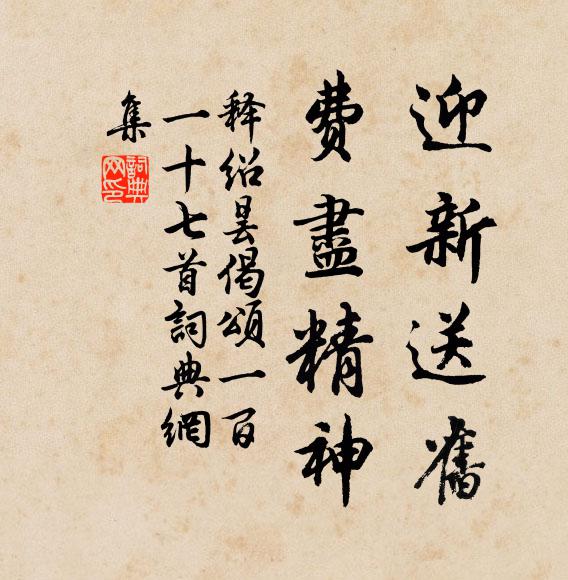 迎新送舊
費盡精神
释绍昙偈頌一百
一十七首詞典網
集
詞典
网印